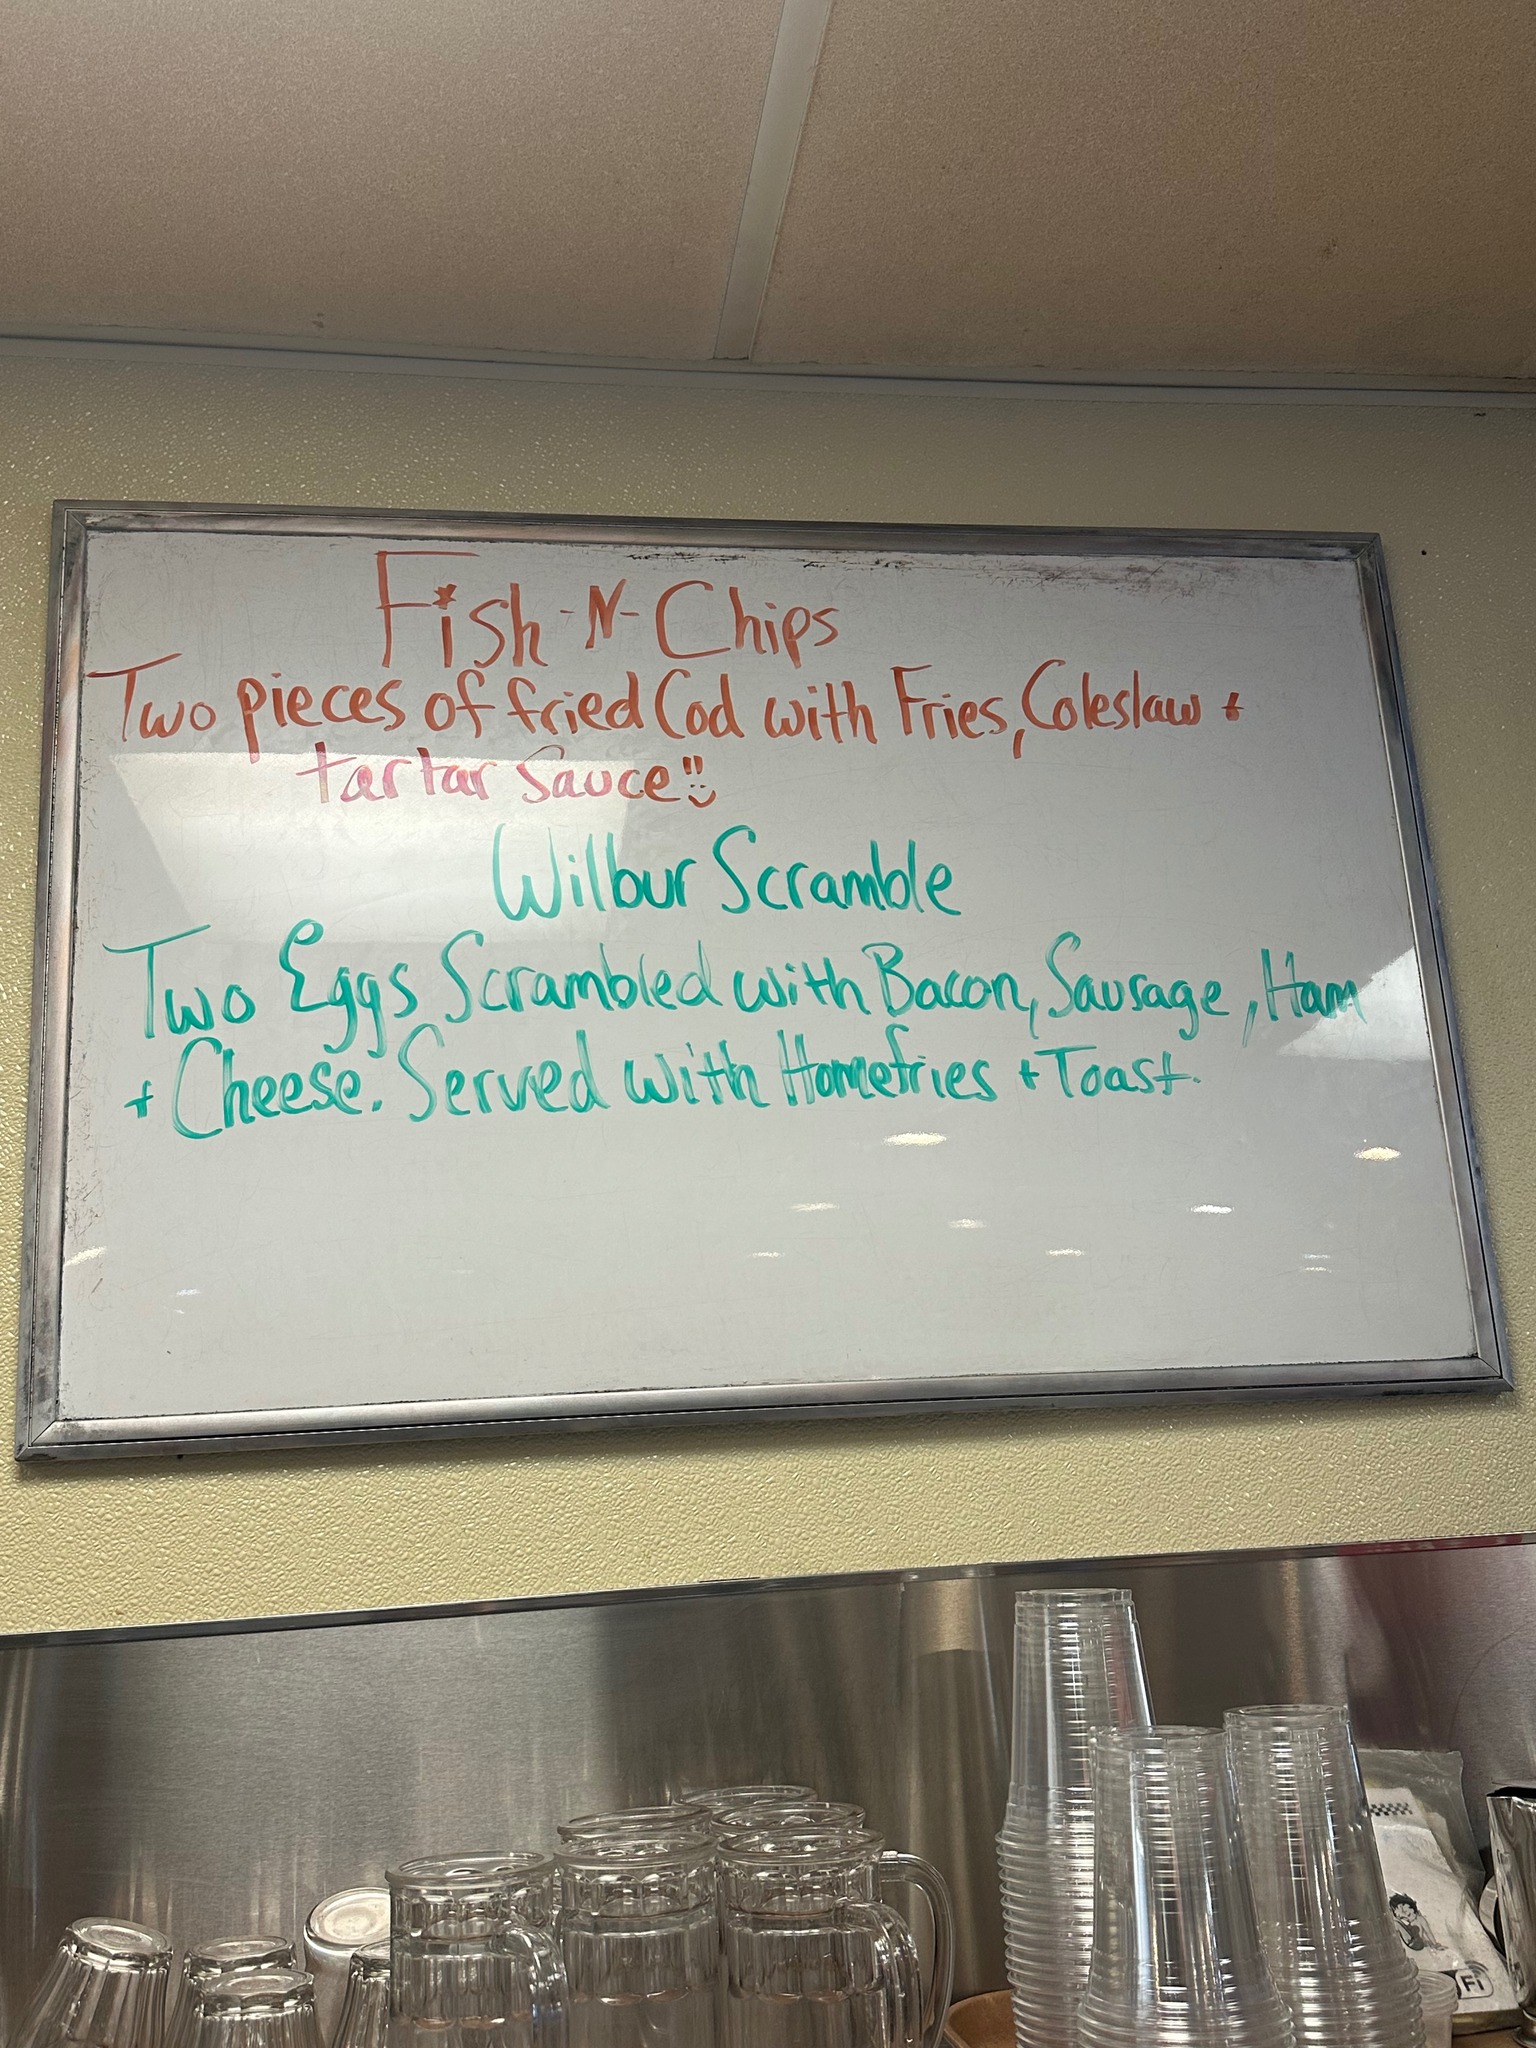 Fish-N-Chips
Two pieces of fried Cod with Fries, Coleslaw +
tartar Sauce!!
Wilbur Scramble
Two Eggs Scrambled with Bacon, Sausage, Ham
+ Cheese. Served with Homefries + Toast.
Fi